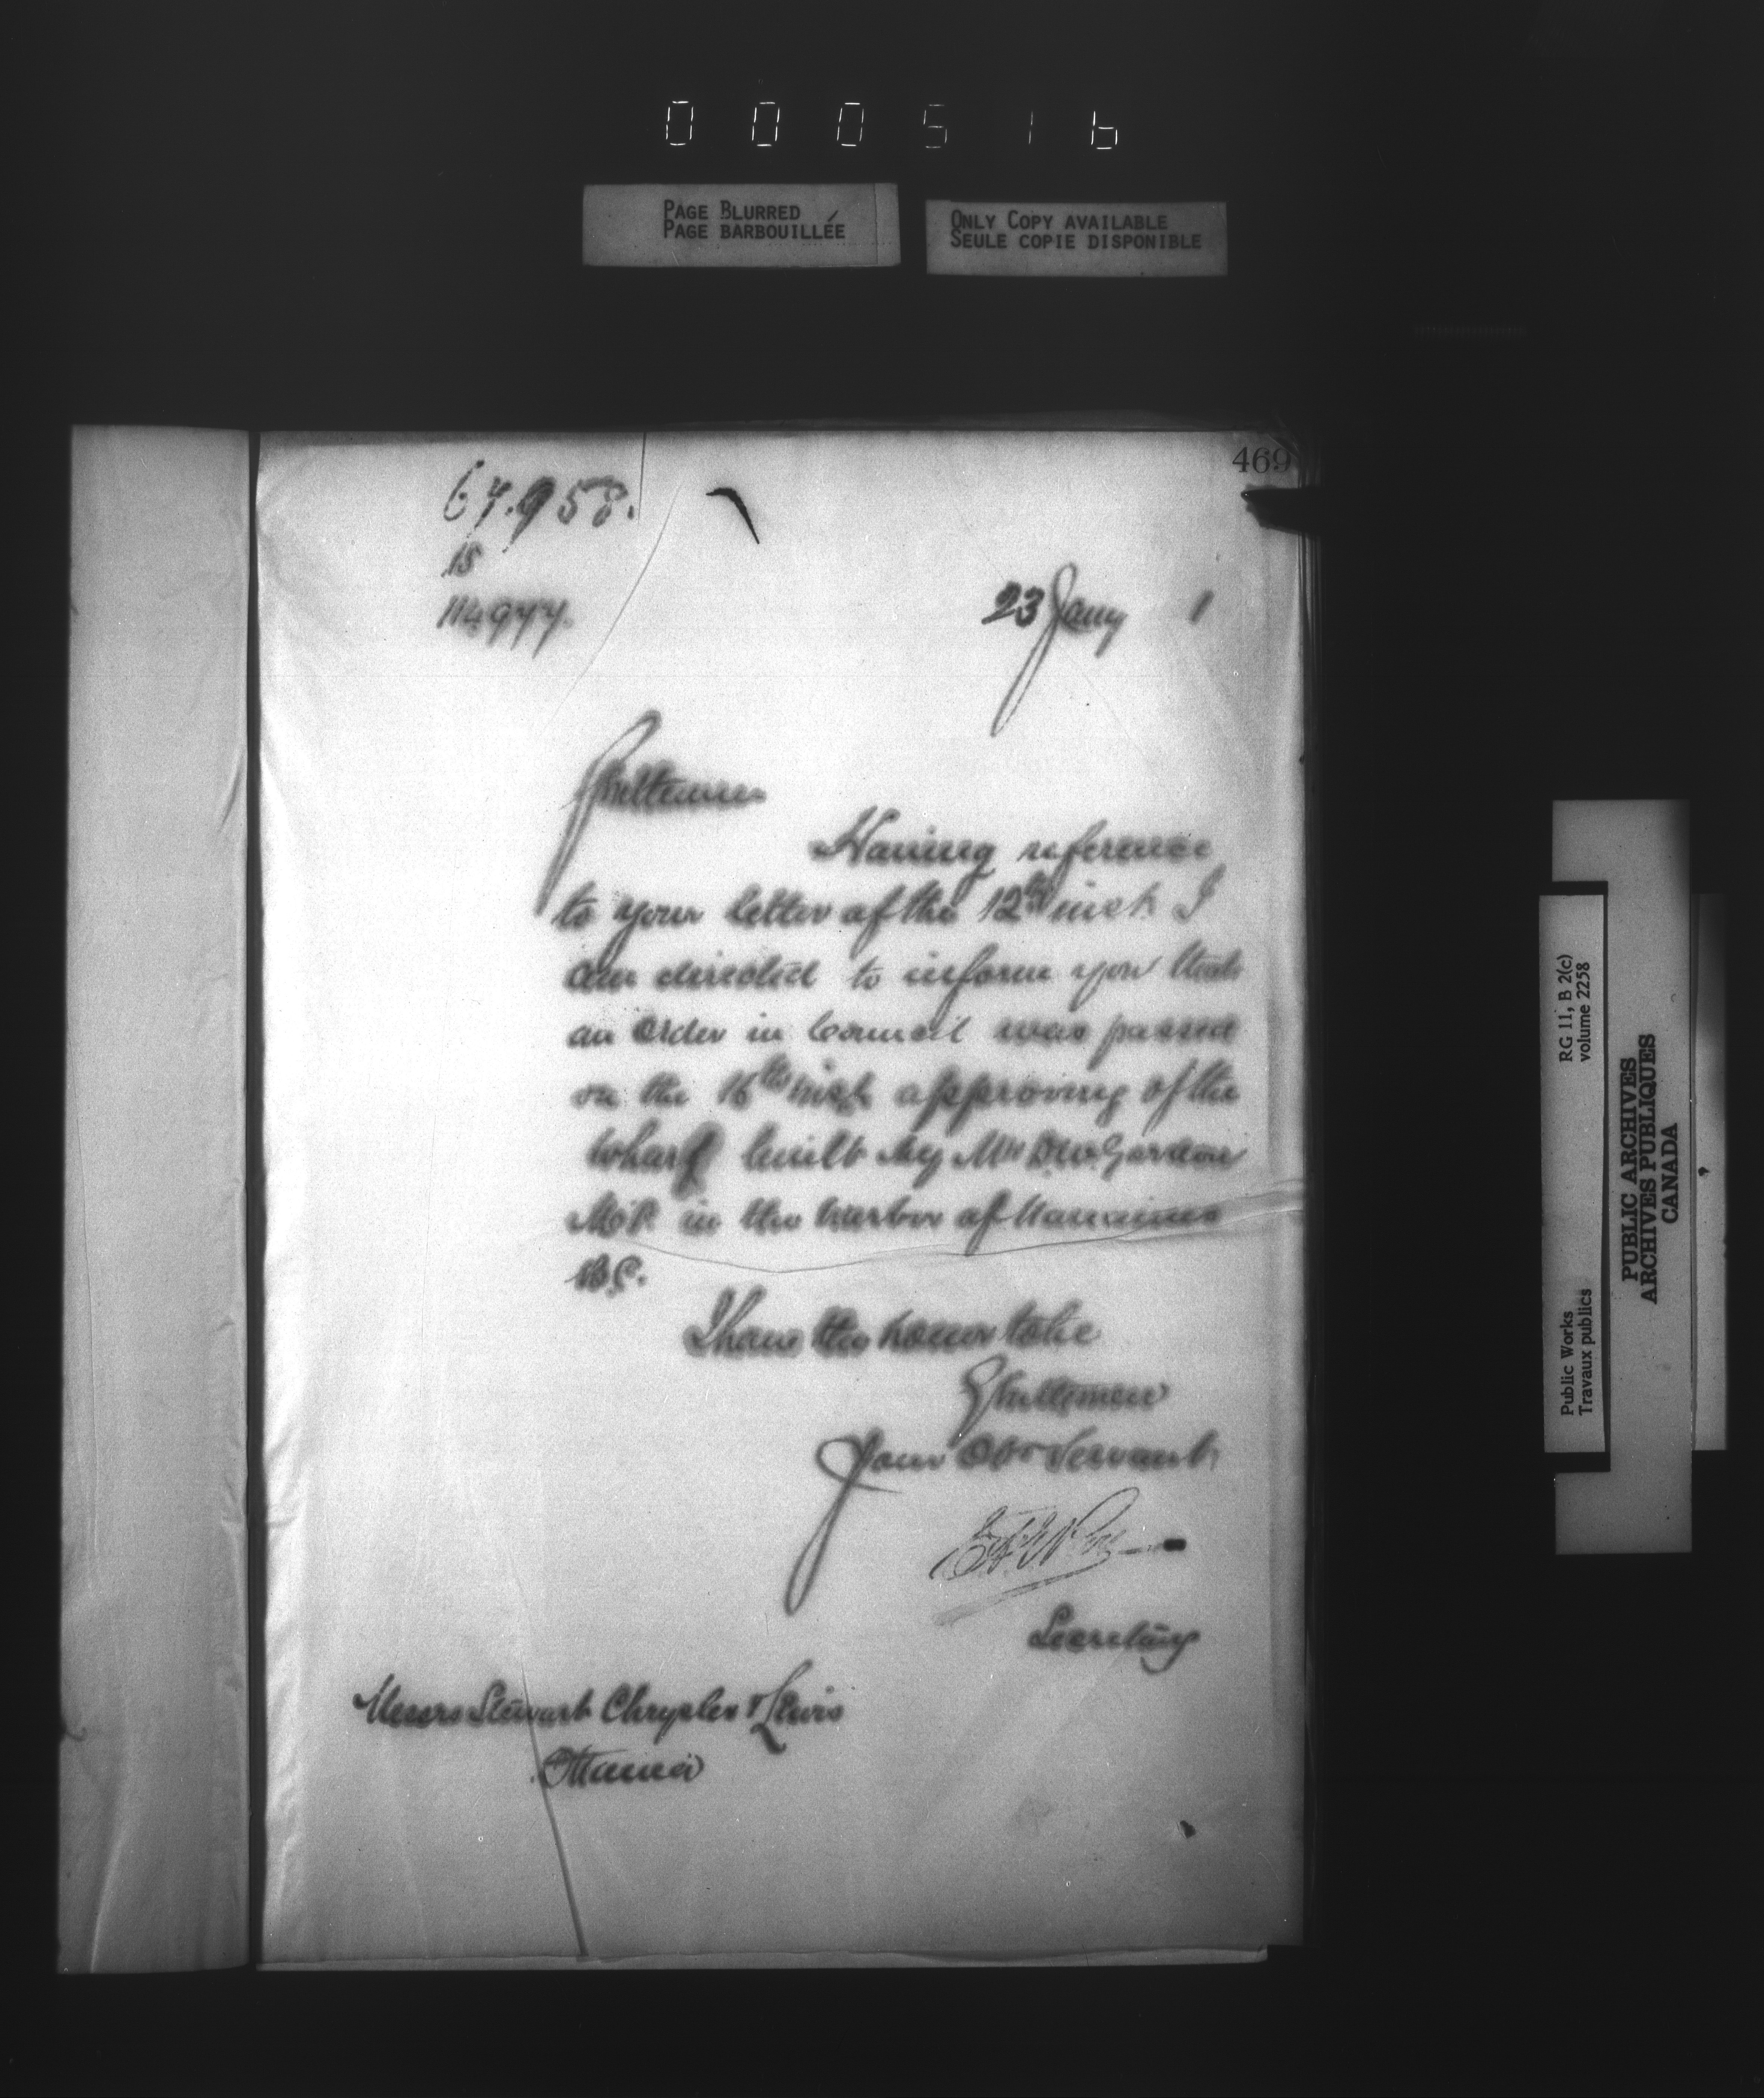 000516
PAGE BLURRED
PAGE BARBOUILLÉE
ONLY COPY AVAILABLE
SEULE COPIE DISPONIBLE
469
67.958.
15
114977.
23 Jany 1
Gentlemen
Having reference
to your letter of the 12th inst. I
am directed to inform you that
an Order in Council was passed
on the 16th inst. approving of the
wharf built by Mr D.W. Gordon
M.P. in the harbor of Nanaimo
B.C.
I have the honor to be
Gentlemen
Your Obt Servant,
Secretary
Messrs Stewart Chrysler & Lewis
Ottawa
RG 11, B 2(c)
volume 2258
Public Works
Travaux publics
PUBLIC ARCHIVES
ARCHIVES PUBLIQUES
CANADA